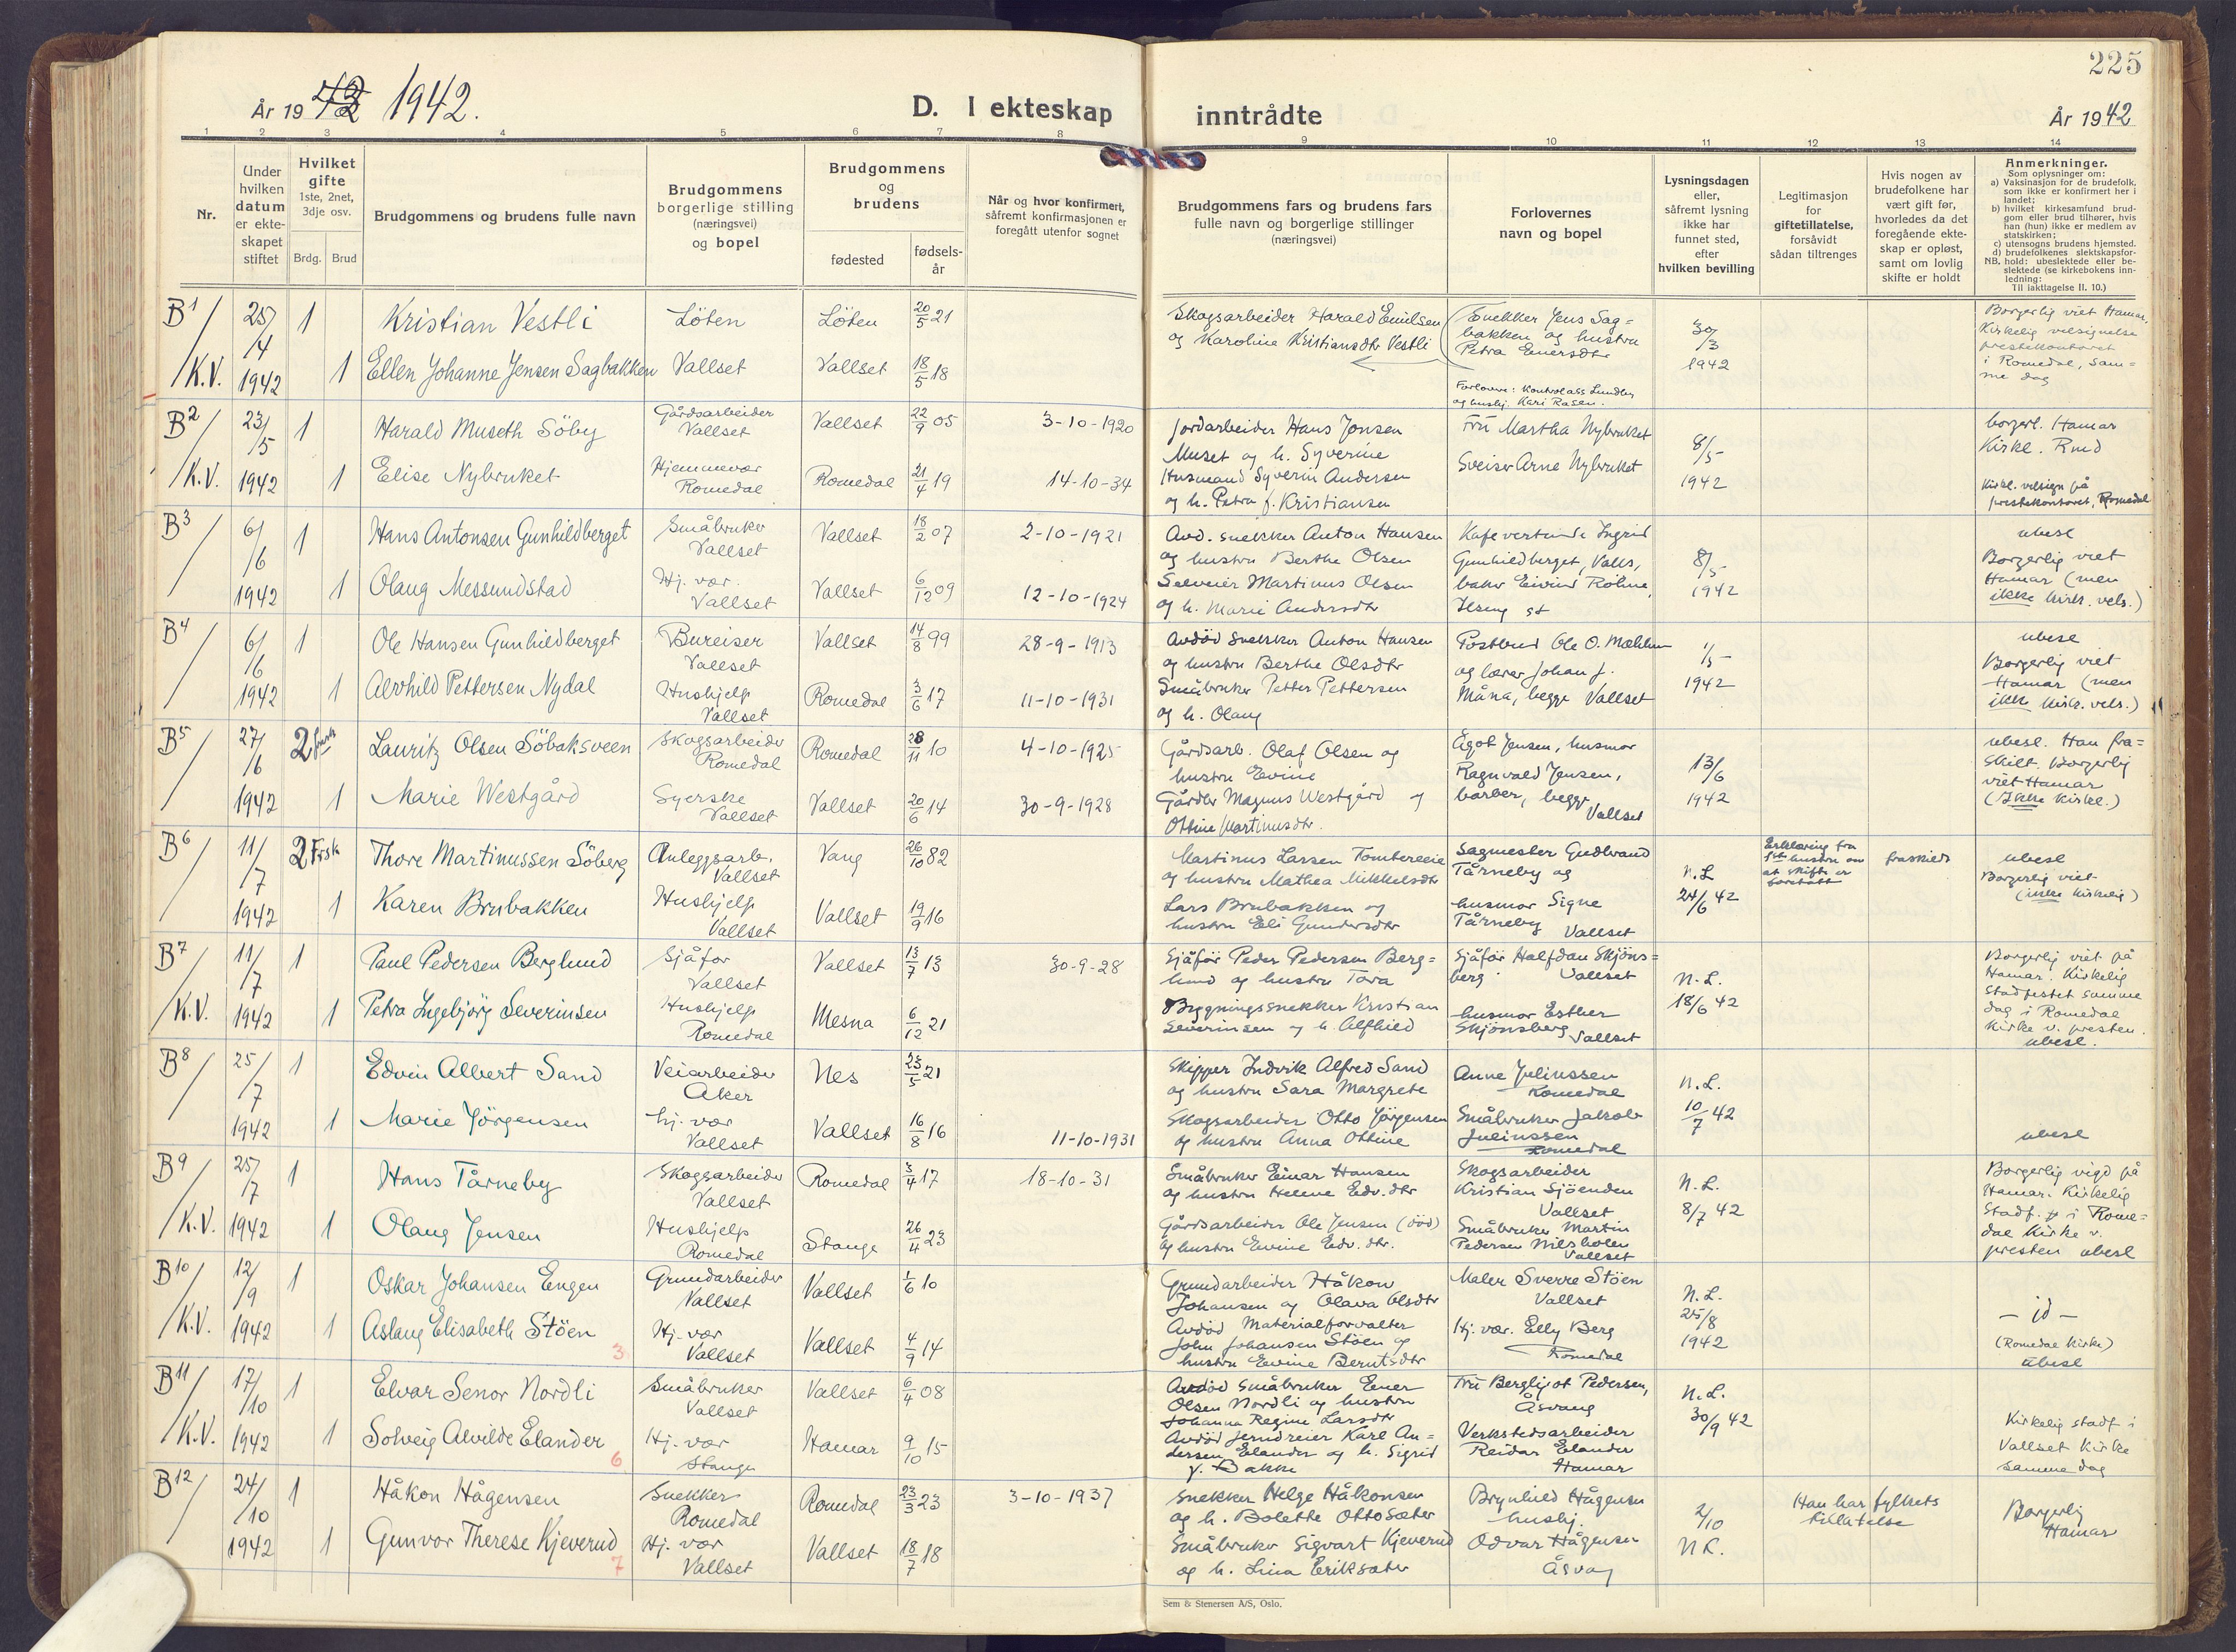 225
År 1942 1942.
D. I ekteskap inntrådte
År 1942
1 2 3 4 5 6 7 8 9 10 11 12 13 14
Nr.
Under hvilken datum er ekte-skapet stiftet
Hvilket gifte 1ste, 2net, 3dje osv.
Brdg. Brud
Brudgommens og brudens fulle navn
Brudgommens borgerlige stilling (næringsvei) og bopel
Brudgommens og brudens
fødested
fødsels-år
Når og hvor konfirmert, såfremt konfirmasjonen er foregått utenfor sognet
Brudgommens fars og brudens fars fulle navn og borgerlige stillinger (næringsvei)
Forlovernes navn og bopel
Lysningsdagen eller, såfremt lysning ikke har funnet sted, efter hvilken bevilling
Legitimasjon for giftetillatelse, forsåvidt sådan tiltrenges
Hvis nogen av brudefolkene har vært gift før, hvorledes da det foregående ekte-skap er opløst, samt om lovlig skifte er holdt
Anmerkninger.
Som oplysninger om:
a) Vaksinasjon for de brudefolk. som ikke er konfirmert her i landet;
b) hvilket kirkesamfund brud-gom eller brud tilhører, hvis han (hun) ikke er medlem av statskirken;
c) utensogns brudens hjemsted.
d) brudefolkenes slektskapsfor-hold: ubeslektede eller be-slektede (se kirkebokens inn-ledning:
NB.
Til iakttagelse II. 10.)
B1 25/4 1 Kristian Vestli Löten Löten 20/5 21
Skogsarbeider Harald Emilsen
og Karoline Kristiansdtr Vestli
Snekker Jens Sag=
bakken og hustru
Petra Einersdtr
30/3
1942
Borgerlig viet Hamar.
Kirkelig velsignelse
prestekontoret
i Romedal, sam=
me dag
K.V. 1942 1 Ellen Johanne Jensen Sagbakken Vallset Vallset 18/5 18
Forlovere: Kontrolass Lundby
og hushj. Kari Rasen.
B2 23/5 1 Harald Museth Söby Gårdsarbeider Vallset Vallset 22/9 05 3-10-1920
Jordarbeider Hans Jonsen
Muset og h. Syverine
Frü Martha Nybruket
8/5
1942
borgerl. Hamar
K.V. 1942 1 Elise Nybruket Hjemmevær Romedal Romedal 21/4 19 14-10-34
Husmand Syverin Andersen
og h. Petra f. Kristiansen
Sveiser Arne Nybruket
Kirkl. velsign på
prestekontoret, Romedal
B3 6/6 1 Hans Antonsen Gunhildberget Småbruker Vallset Vallset 18/2 07 2-10-1921
Avd. snekker Anton Hansen
og hustru Berthe Olsen
Kafevertinde Ingrid
Gunhildberget, Valls,
8/5
1942
ubesl
Borgerlig viet
Hamar (men
ikke kirk. vels.)
1942 1 Olaug Messundstad Hj. vær. Vallset Vallset 6/12 09 12-10-1924
Selveier Martinus Olsen
og h. Marie Andersdtr
baker Eivind Rohne,
Ilseng st
B4 6/6 1 Ole Hansen Gunhildberget Bureiser Vallset Vallset 14/8 99 28-9-1913
Avdöd snekker Anton Hansen
og hustru Berthe Olsdtr
Postbud Ole O. Mæhlum
og lærer Johan J.
Måna, begge Vallset
1/5
1942
ubesl
Borgerlig viet
Hamar (men
ikke kirk. vels.)
1942 1 Alvhild Pettersen Nydal Hushjelp Vallset Romedal 3/6 17 11-10-1931
Småbruker Petter Pettersen
og h. Olaug
B5 27/6 2 frask Lauritz Olsen Söbaksveen Skogsarbeider Romedal Romedal 28/11 10 4-10-1925
Gårdsarb. Olaf Olsen og
hustru Evine
Ågot Jensen, husmor
Ragnvald Jensen,
barber, begge
Vallset
13/6
1942
ubesl. Han fra=
skilt. Borgerlig
viet Hamar
(Ikke Kirkl.)
1942 1 Marie Westgård Syerske Vallset Vallset 20/6 14 30-9-1928
Gårdbr Magnus Westgård og
Othine Martinusdtr.
B6 11/7 2 Frsk Thore Martinussen Söberg Anleggsarb. Vallset Vang 26/10 82
Martinus Larsen Tombereeie
og hustru Mathea Mikkelsdtr
Sagmester Gudbrand
Tårneby og
N.L
24/6 42
Erklæring fra
1ste hustru om
at skifte er
foretatt
fraskilt
ubesl
Borgerlig viet
(ikke kirkelig)
1942 1 Karen Brubakken Hushjelp Vallset Vallset 19/9 16
Lars Brubakken og
hustru Eli Gundersdtr
husmor Signe
Tårneby Vallset
B7 11/7 1 Paul Pedersen Berglund Sjåför Vallset Vallset 13/7 13 30-9-28
Sjåför Peder Pedersen Berg=
lund og hustru Tora
Sjåför Halfdan Skjöns=
berg Vallset
N.L.
18/6 42
Borgerlig viet på
Hamar. Kirkelig
stadfestet samme
dag i Romedal
Kirke v. presten.
ubesl.
K.V. 1942 1 Petra Ingebjörg Severinsen Hushjelp Romedal Mesna 6/12 21
Bygningssnekker Kristian
Severinsen og h. Alfhild
husmor Esther
Skjönsberg Vallset
B8 25/7 1 Edvin Albert Sand Veiarbeider Aker Nes 25/5 21
Skipper Ludvik Alfred Sand
og hustru Sara Margrete
Anne Julinssen
Romedal
N.L.
10/7 42
1942 1 Marie Jörgensen hj. vær Vallset Vallset 16/8 16 11-10-1931
Skogsarbeider Otto Jörgensen
og hustru Anna Othine
Småbruker Jakob
Julinssen
Romedal
ubesl
B9 25/7 1 Hans Tårneby Skogsarbeider Vallset Romedal 3/4 17 18-10-31
Småbruker Einar Hansen
og hustru Helene Edv.dtr
Skogsarbeider
Kristian Sjöenden
Vallset
N.L.
8/7 42
Borgerlig vigd på
Hamar. Kirkelig
Stadf. i Rome=
dal Kirke v.
presten ubesl
K.V. 1942 1 Olaug Jensen Hushjelp Romedal Stange 26/4 23
Gårdsarbeider Ole Jensen (död)
og hustru Evine Edv. dtr.
Småbruker Martin
Pedersen Nilsholen
Vallset
B10 12/9 1 Oskar Johansen Engen Grundarbeider Vallset Vallset 1/6 10
Grundarbeider Håkon
Johansen og Olava Olsdtr
Maler Sverre Stöen
Vallset
N.L.
25/8
1942
- id -
(Romedal Kirke)
ubesl
K.V. 1942 1 Aslaug Elisabeth Stöen 3 Hj. vær Vallset Vallset 4/9 14
Avdöd Materialforvalter
John Johansen Stöen og
hustru Evine Berntsdtr
Hj. vær. Elly Berg
Romedal
B11 17/10 1 Elvar Senor Nordli Småbruker Vallset Vallset 6/4 08
Avdöd Småbruker Ener
Olsen Nordli og hustru
Johanna Regine Larsdtr
Frü Bergljot Pedersen,
Åsvang
N.L.
30/9 42
Kirkelig stadf i
Vallset Kirke
samme dag
K.V. 1942 1 Solveig Alvilde Elander 6 Hj. vær Stange Hamar 9/10 15
Avdöd Jerndreier Karl An=
dersen Elander og h. Sigrid
f. Bakke
Verkstedsarbeider
Reidar Elander
Hamar
B12 24/10 1 Håkon Hågensen Snekker Romedal Romedal 23/3 23 3-10-1937
Snekker Helge Håkonsen
og h. Bolette Ottosdtr
Brynhild Hågensen
hushj.
2/10
NL.
Han har fylkets
tillatelse
Borgerlig
Hamar
1942 1 Gunvor Therese Kjeverud 7 Hj. vær Vallset Vallset 18/7 18
Småbruker Sigvart Kjeverud
og h. Lina Eriksdtr
Odvar Hågensen
Åsvang
Sem & Stenersen A/S, Oslo.